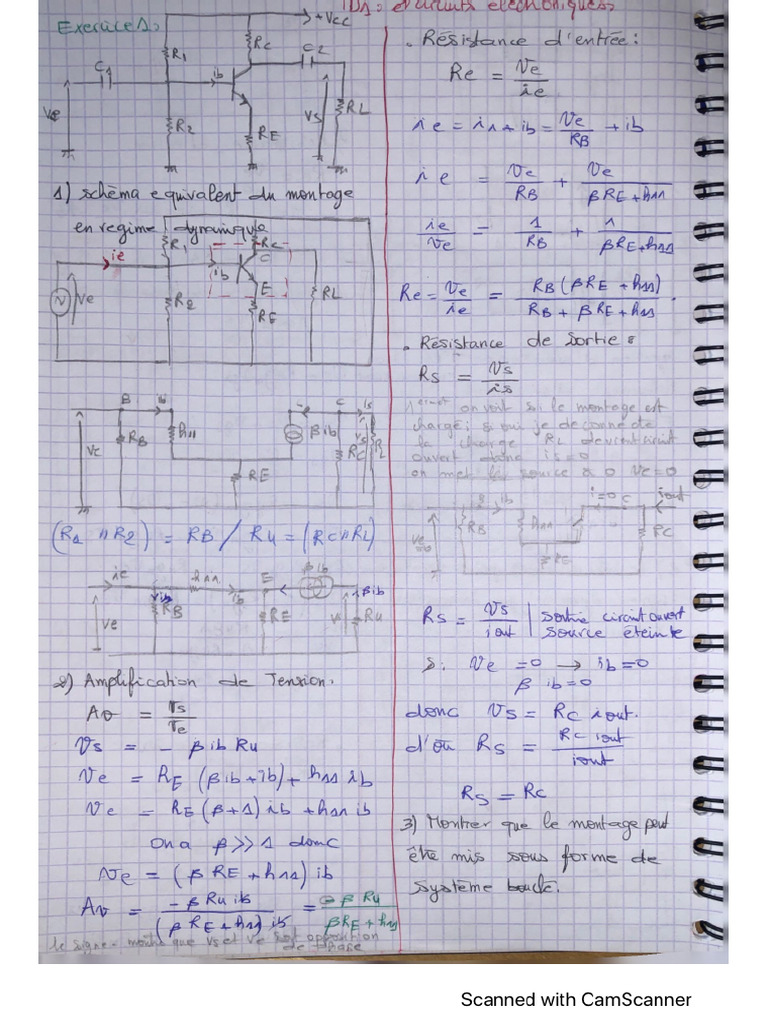 TD1: circuits electroniques
Exercice 1:
+Vcc
R1
Rc
C2
C1
ib
Ve
R2
RE
Vs
RL
1) schéma equivalent du montage
en regime dynamique
R1
Rc
ie
ib
C
E
Ve
R2
RE
RL
B
ib
C
is
Ve
RB
h11
βib
Rc
Vs
RL
RE
(R1 // R2) = RB / Ru = (Rc // RL)
ie
h11
ib
E
βib
βib
RB
RE
Ru
Ve
2) Amplification de Tension.
Av = Vs / Ve
Vs = - β ib Ru
Ve = RE (βib + ib) + h11 ib
Ve = RE (β+1) ib + h11 ib
On a β >> 1 donc
Ve = (β RE + h11) ib
Av = -β Ru ib / (β RE + h11) ib = -β Ru / β RE + h11
le signe - montre que Vs et Ve sont opposition
de phase
. Résistance d'entrée:
Re = Ve / ie
ie = i1 + ib = Ve / RB + ib
ie = Ve / RB + Ve / βRE + h11
ie / Ve = 1 / RB + 1 / βRE + h11
Re = Ve / ie = RB (βRE + h11) / RB + βRE + h11 .
. Résistance de sortie :
Rs = Vs / is
on voit si le montage est
chargé; si oui je déconnecte
la charge RL devient circuit
ouvert donc is = 0
on met la source à 0 Ve = 0
B
ib
i=0
C
iout
RB
h11
RE
RC
Rs = Vs / iout | sortie circuit ouvert
source éteinte
si Ve = 0 → ib = 0
β ib = 0
donc Vs = Rc iout.
d'où Rs = Rc iout / iout
Rs = Rc
3) Montrer que le montage peut
être mis sous forme de
système bouclé.
Scanned with CamScanner